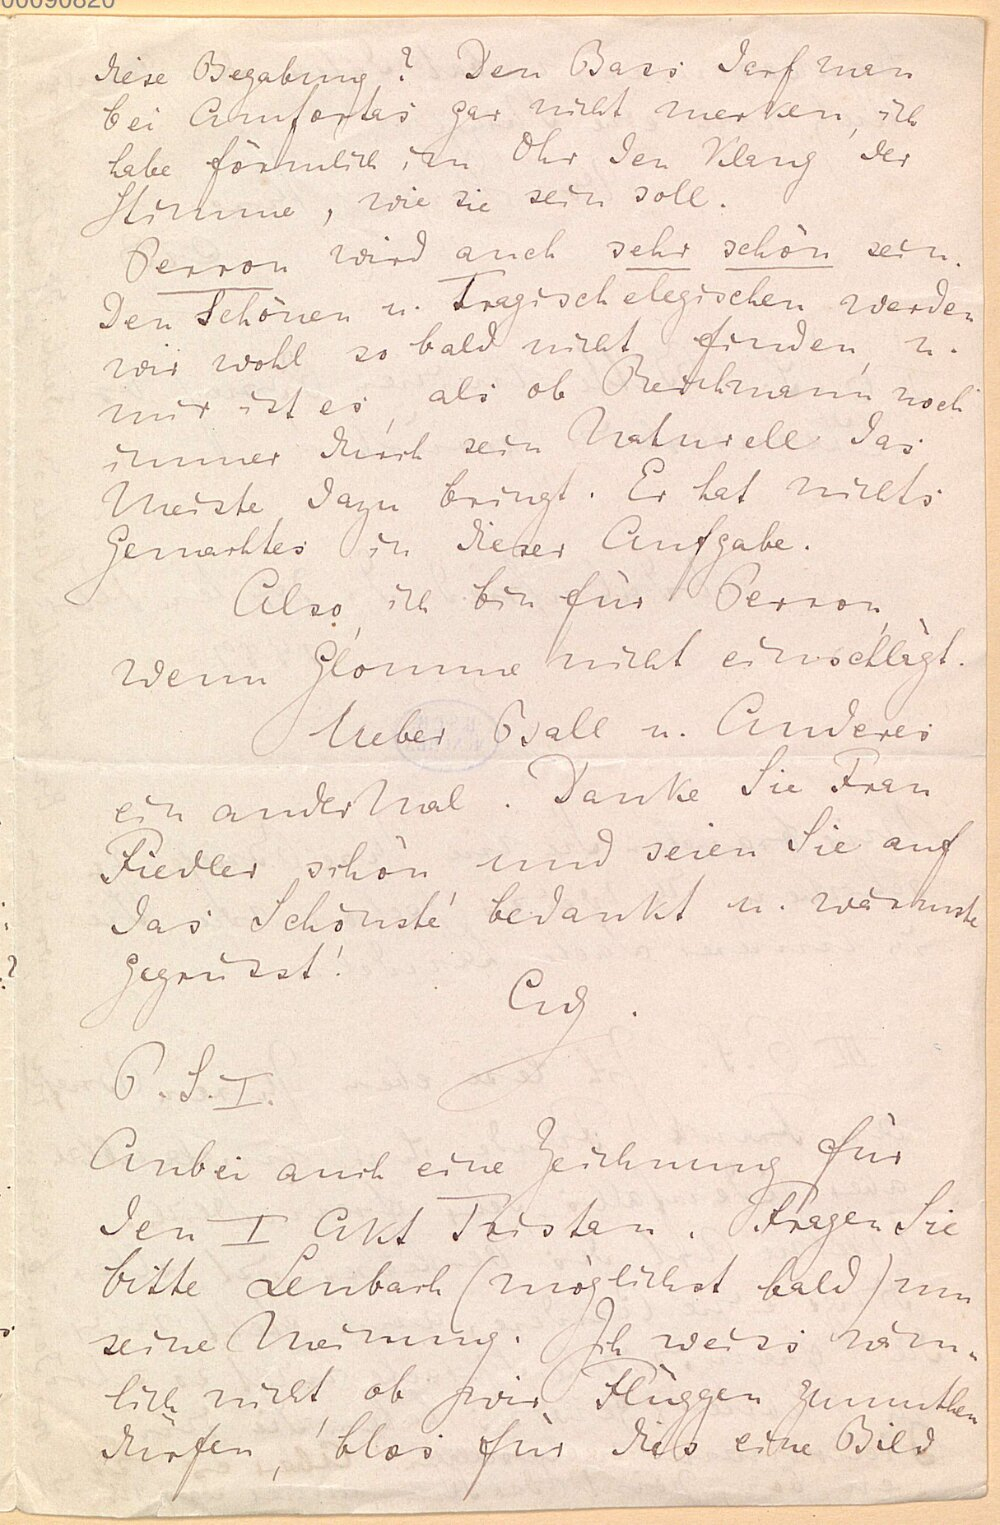 00090820
diese Begabung? Den Bass darf man
bei Amfortas gar nicht merken, ich
habe förmlich im Ohr den Klang der
Stimme, wie sie sein soll.
Perron wird auch sehr schön sein.
Den Schönen u. Tragisch elegischen werden
wir wohl so bald nicht finden, u.
mir ist es, als ob Reichmann noch
immer durch sein Naturell das
Meiste dazu bringt. Er hat nichts
Gemachtes in dieser Aufgabe.
Also, ich bin für Perron,
wenn Glomme nicht einschlägt.
Ueber Ball u. Anderes
ein ander Mal. Danke Sie Frau
Fiedler schön und seien Sie auf
das Schönste bedankt u. wärmste
gegrüsst!
P.S. I.
Anbei auch eine Zeichnung für
den I Akt Tristan. Fragen Sie
bitte Lenbach (möglichst bald) um
seine Meinung. Ich weiss näm-
lich nicht ob wir Flüggen zumuthen
dürfen, blos für dies eine Bild